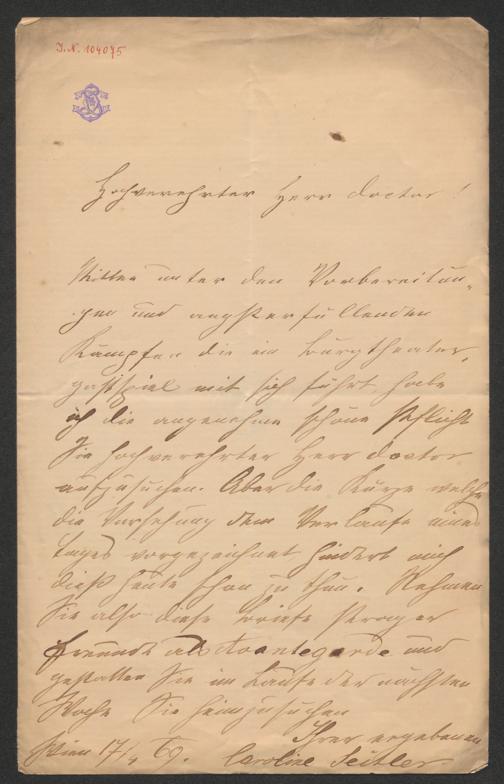 J.N. 104075
Hochverehrter Herr Doctor!
Mitten unter den Vorbereitun-
gen und angsterfüllenden
Kämpfen die ein Burgtheater-
gastspiel mit sich führt habe
ich die angenehme schöne Pflicht
Sie hochverehrter Herr Doctor
aufzusuchen. Aber die Kürze welche
die Vorsehung dem Verlaufe eines
Tages vorgezeichnet hindert mich
dieß heute schon zu thun. Nehmen
Sie also diese Briefe Prager
Freunde als Avantegarde und
gestatten Sie im Laufe der nächsten
Woche Sie heimzusuchen
Ihrer ergebenen
Wien 17/4 69. Caroline Seitler